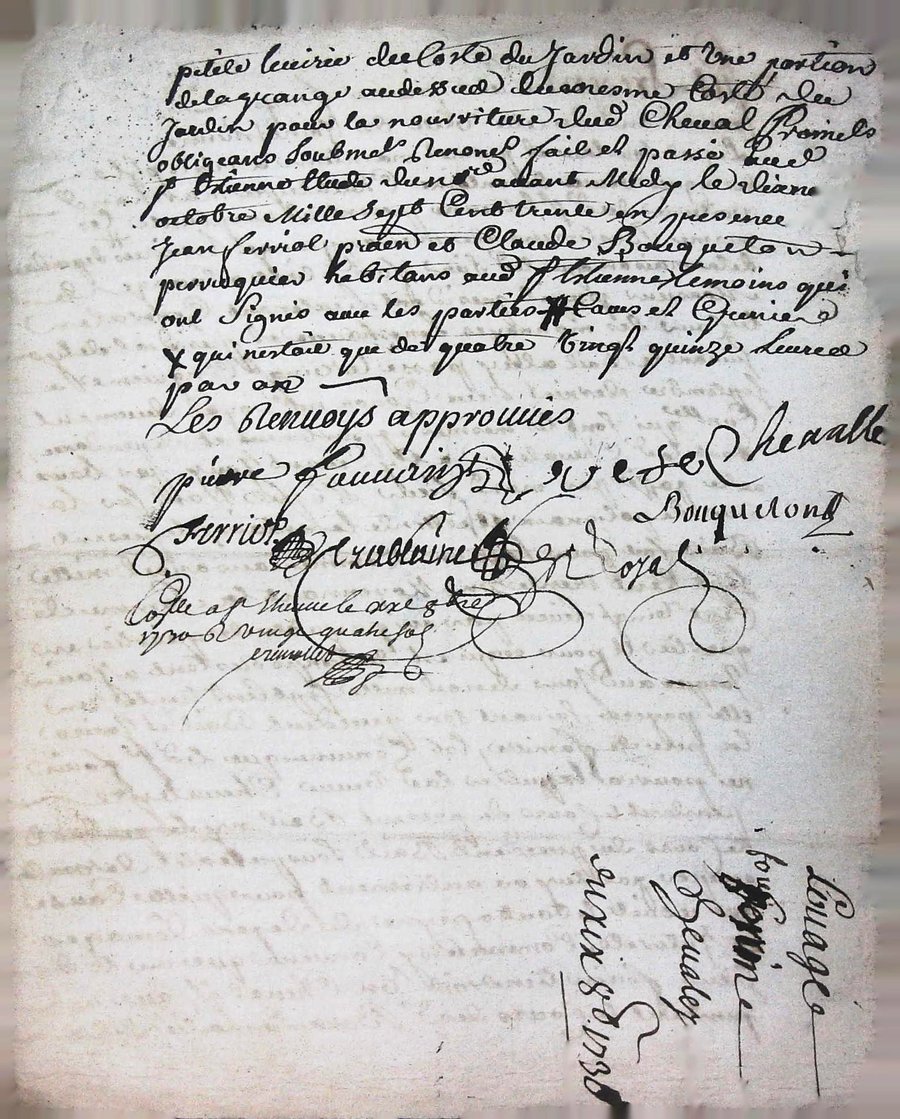 petite lucirée du Costé du Jardin et Une portion
de la grange audessus du mesme Costé du
Jardin pour la nourriture dud Cheval Promets
obligeans Soubmes Renones fait et passé aud
St Etienne Etude du nore avant Midy le
octobre Mille Sept Cent trente en presence
Jean ferriol praen et Claude Bouqueton
perruquier habitans aud St Etienne temoins qui
ont Signés avec les parties # et
X qui nestoit que de quatre Vingt quinze Livres
par an
Les Renvoys approuvés
pierre Chevalle
Bouqueton
Ferriol
Royal
St Etienne le xxe 8bre
1730 R vingt quatre sol
Louage
pour
Chevalier
du xix 8b. 1730